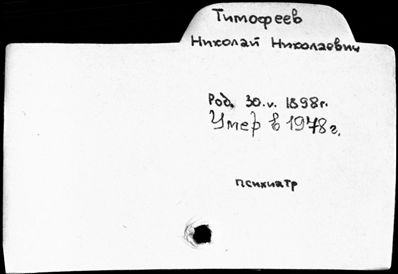 Тимофеев
Николай Николаевич
Род. 30.v. 1898г.
Умер в 1978г.
психиатр